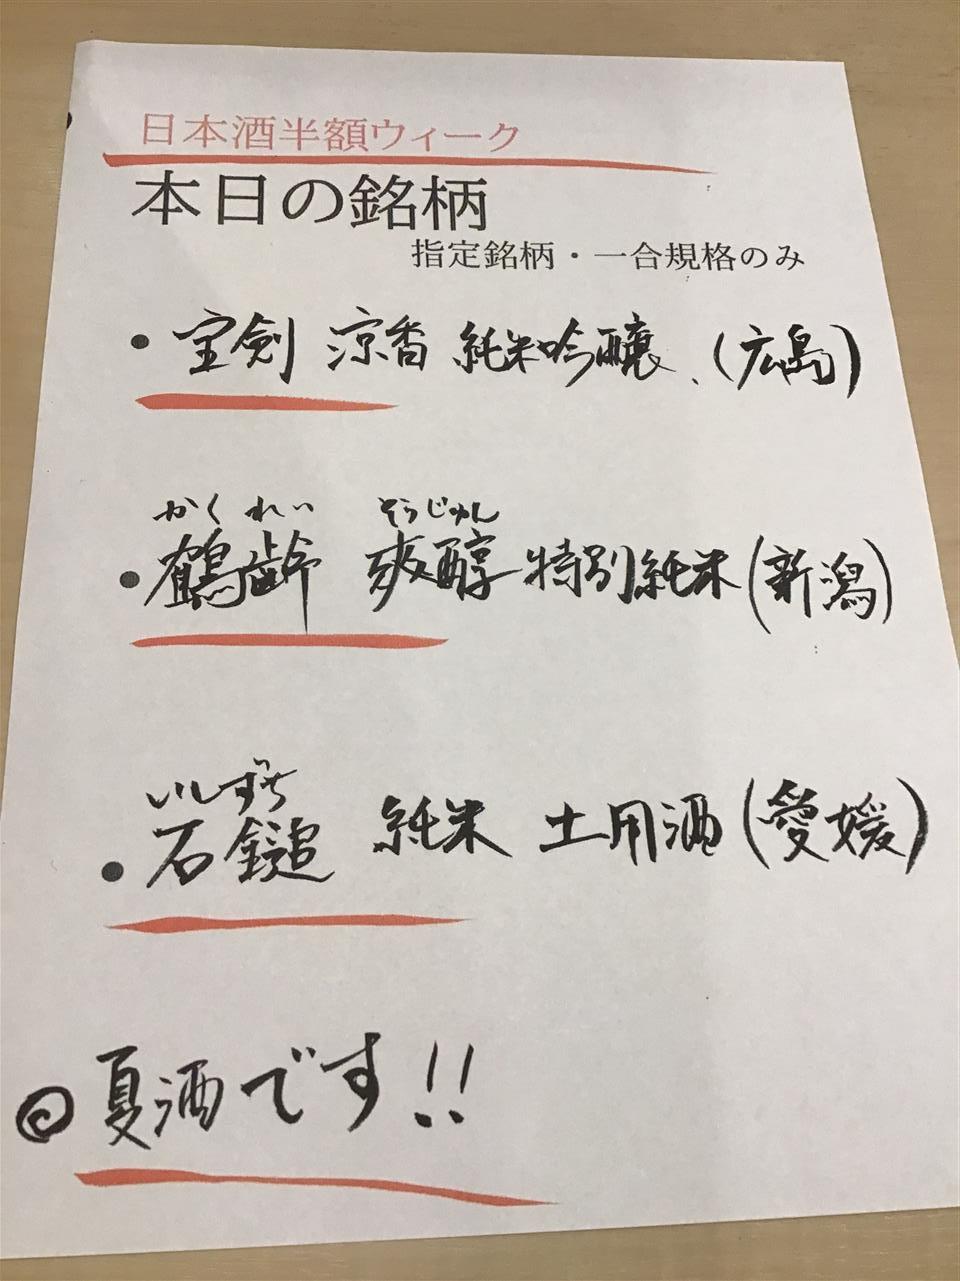 日本酒半額ウィーク
本日の銘柄
指定銘柄・一合規格のみ
・宝剣 涼香 純米吟醸、(広島)
かくれい そうじゅん
・鶴齢 爽醇 特別純米(新潟)
いしずち
・石鎚 純米 土用酒(愛媛)
◎夏酒です!!